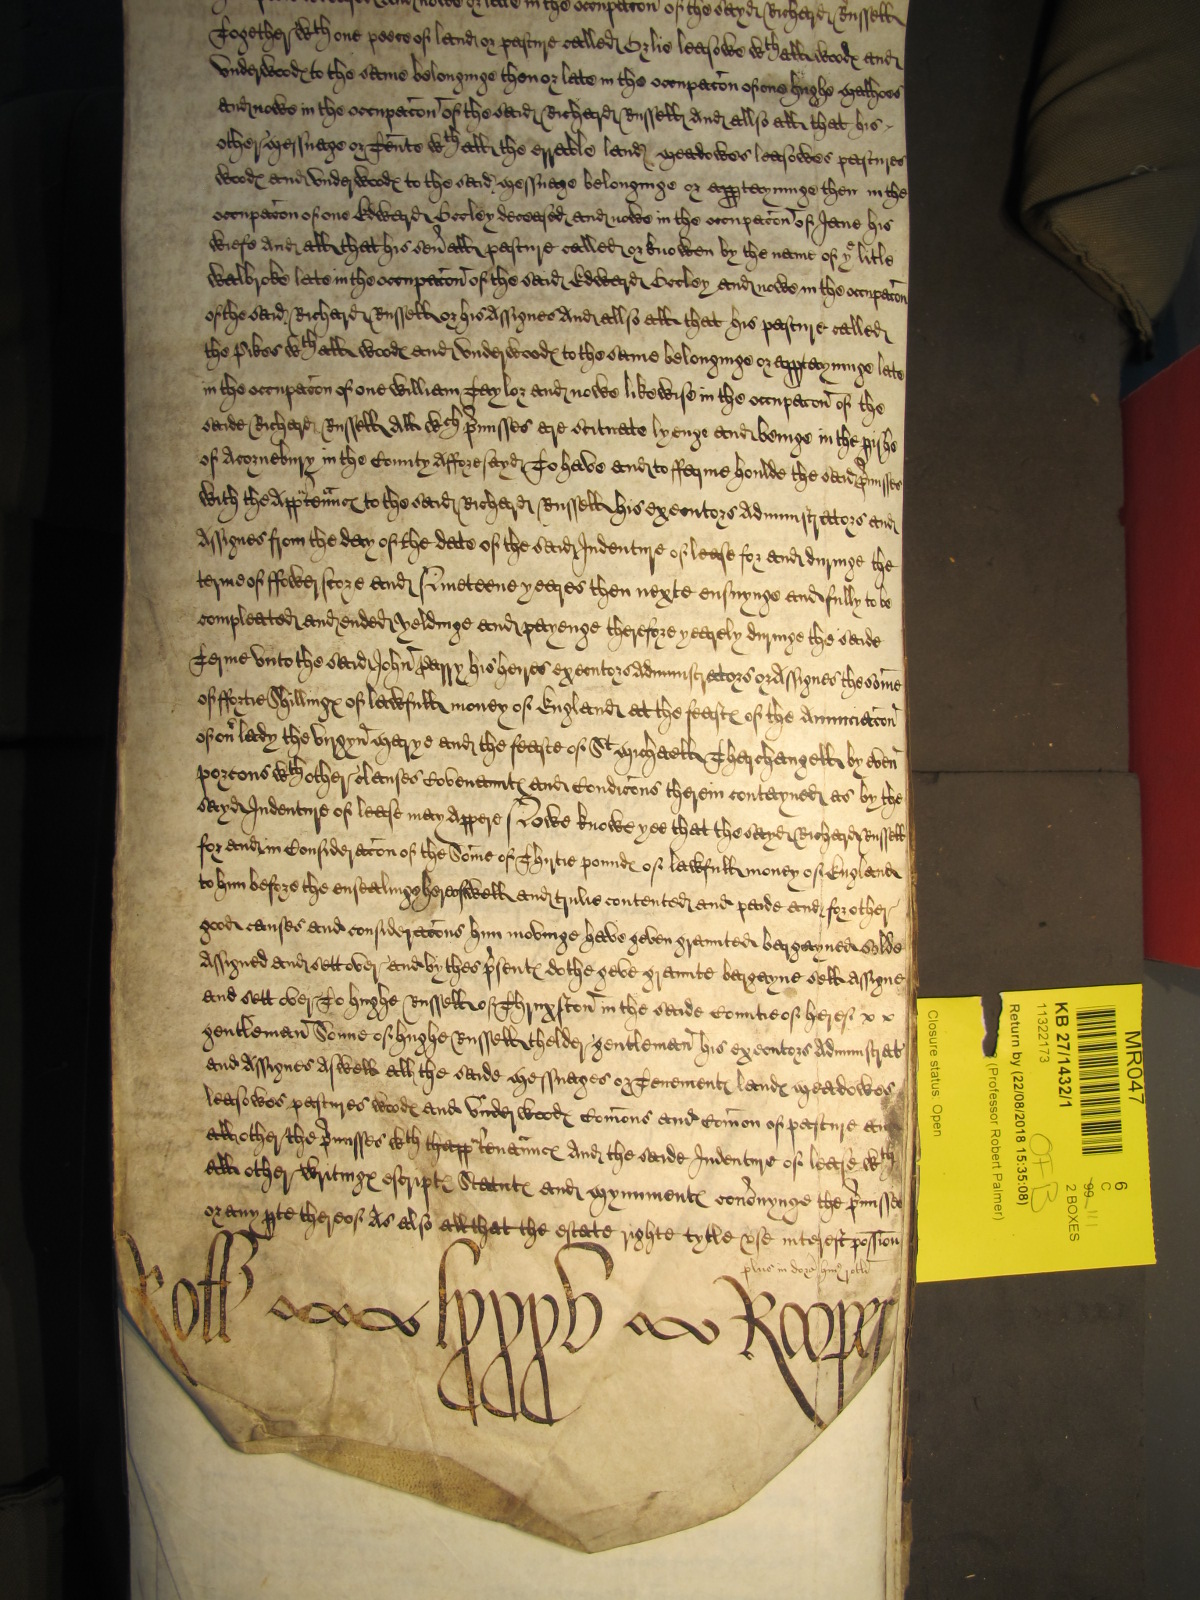 and nowe or late in the occupacon of the sayd Richard Russell
Together wth one peece of land or pasture called Orlis leasowe wth all woode and
underwoode to the same belonginge then or late in the occupacon of one hughe mathoes
and nowe in the occupacon of the said Richard Russell And allso all that his
other messuage or Tente wth all the errable land meadowes leasowes pastures
woode and underwoode to the said messuage belonginge or apptayninge then in the
occupacon of one Edward Eccley deceased and nowe in the occupacon of Jane his
wiefe And all that his sevall pasture called or knowen by the name of ye litle
walbroke late in the occupacon of the said Edward Eccley and nowe in the occupacon
of the said Richard Russell or his Assignes And allso all that his pasture called
the pikes wth all woode and underwoode to the same belonginge or apptayninge late
in the occupacon of one william Taylor and nowe likewise in the occupacon of the
saide Richard Russell All wch pmisses are scituate lyenge and beinge in the pishe
of Acornebury in the County Afforesayd To have and to ffarme houlde the said pmisses
with the Apptennce to the said Richard Russell his executors Administrators and
Assignes from the day of the date of the said Indenture of lease for and duringe the
terme of ffower score and Nineteene yeares then nexte ensuynge and fully to be
compleated and ended yeldinge and payenge therefore yearely duringe the saide
Terme unto the said John Parry his heires executors Administrators or Assignes the some
of ffortie Shillinge of lawfull money of England at the feaste of the Annunciacon
of or lady the virgyn Marye and the feaste of St Michaell Tharchangell by even
porcons wth other clauses Covenante and Condicons therein contayned as by the
sayd Indenture of lease may Appere Nowe knowe yee that the sayd Richard Russell
for and in Consideracon of the Some of Thirtie pounde of lawfull money of England
to him before the ensealinge hereof well and trulie contented and paide and for other
good causes and consideracons him movinge have geven graunted bargayned solde
Assigned and sett over and by thes psente dothe geve graunte bargayne sell assigne
and sett over To hughe Russell of Thruxston in the saide Comitie of heref x x
gentleman Sonne of hughe Russell thelder gentleman his executors Administrat
and Assignes Aswell all the saide messuages or Tenemente lande meadowes
leasowes pastures woode and Underwoode Comons and Comon of pasture and
all other the pmisses wth thapptennce And the saide Indenture of lease wth
all other writinge escripte Statute and mynumente concnynge the pmisses
or any pte thereof As also all that the estate righte tytle use interest possion
plus in dorso
Roper
MR047
KB 27/1432/1
11322173
Return by (22/08/2018 15:35:08)
(Professor Robert Palmer)
Closure status: Open
6
C
2 BOXES